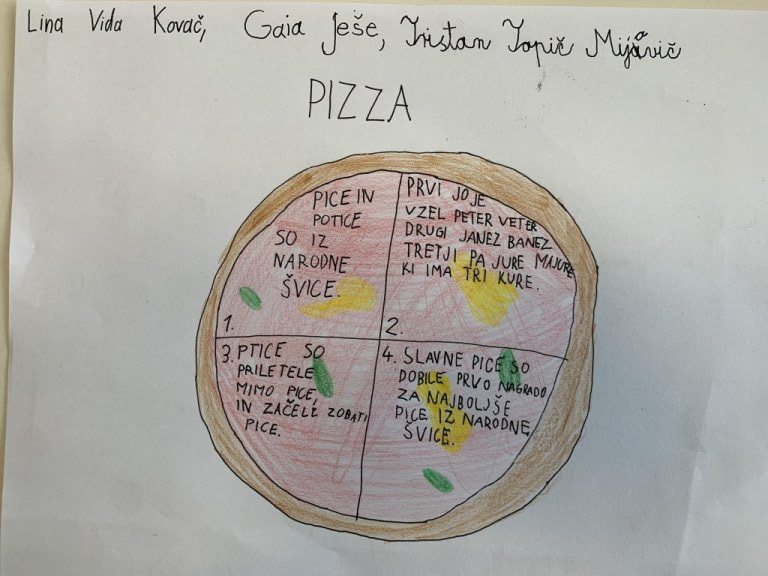 Lina Vida Kovač, Gaia Ješe, Tristan Topič Mijavič
PIZZA
PICE IN
POTICE
SO IZ
NARODNE
ŠVICE.
1.
PRVI JO JE
VZEL PETER VETER
DRUGI JANEZ BANEZ
TRETJI PA JURE MAJURE
KI IMA TRI KURE.
2.
3. PTICE SO
PRILETELE
MIMO PICE,
IN ZAČELE ZOBATI
PICE.
4. SLAVNE PICE SO
DOBILE PRVO NAGRADO
ZA NAJBOLJŠE
PICE IZ NARODNE
ŠVICE.